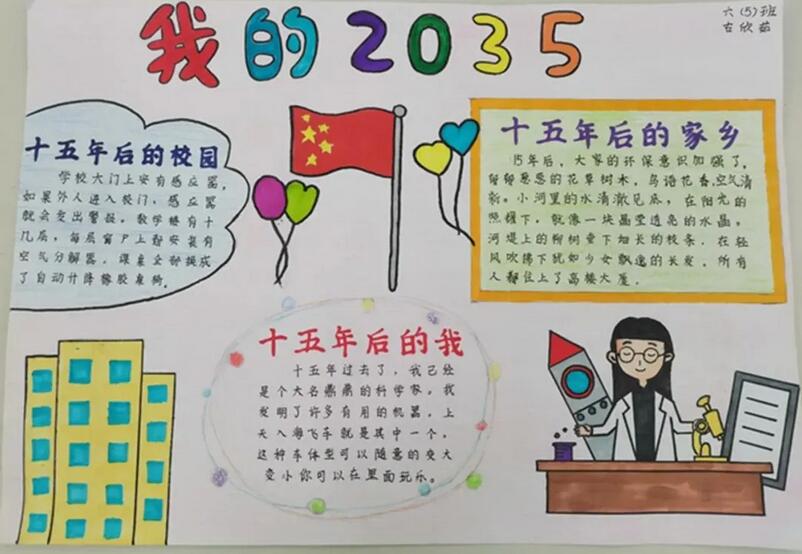 我的2035
六(5)班
古欣茹
十五年后的校园
学校大门上安有感应器,
如果外人进入校门,感应器
就会发出警报。教学楼有十
几层,每层窗户上都安装有
空气分解器。课桌全部换成
了自动升降橡胶桌椅。
十五年后的家乡
15年后,大家的环保意识加强了,
郁郁葱葱的花草树木,鸟语花香,空气清
新。小河里的水清澈见底,在阳光的
照耀下,就像一块晶莹透亮的水晶,
河堤上的柳树垂下细长的枝条,在轻
风吹拂下犹如少女飘逸的长发,所有
人都住上了高楼大厦.
十五年后的我
十五年过去了,我已经
是个大名鼎鼎的科学家。我
发明了许多有用的机器,上
天入海飞车就是其中一个,
这种车体型可以随意的变大
变小你可以在里面玩乐。